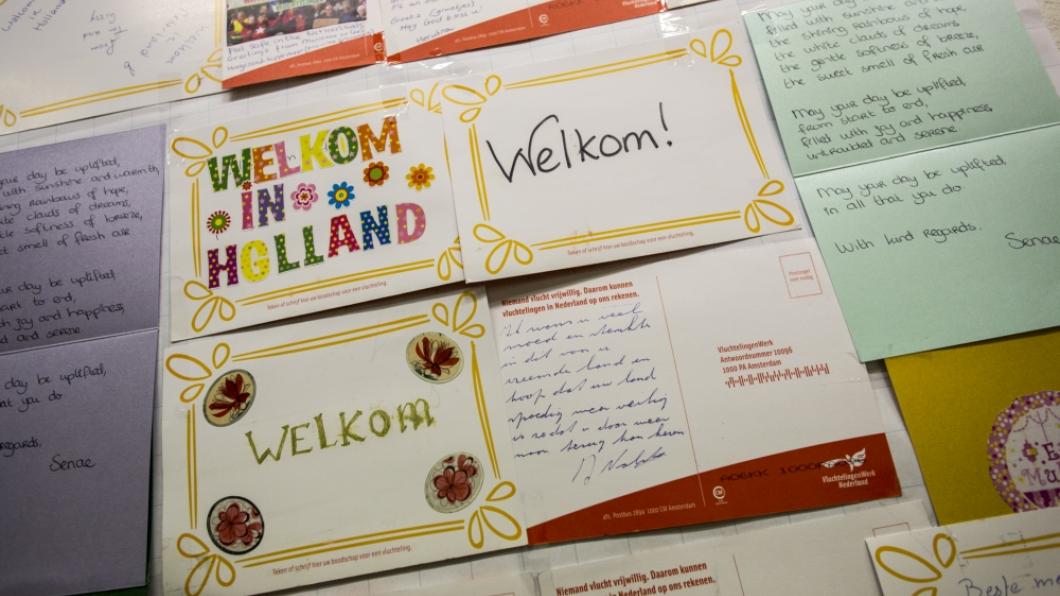 welkom in
Holland
Feel Safe in the Netherlands
Greetings from
God bless u!
afz. Postbus 2894 1000 CW Amsterdam
filled with sunshine and warmth
the shining rainbows of hope,
the white clouds of dreams,
the gentle softness of breeze,
the sweet smell of fresh air
May your day be uplifted,
from start to end,
filled with joy and happiness,
untroubled and serene.
May your day be uplifted,
in all that you do.
With kind regards.
Senae
your day be uplifted,
with sunshine and warmth,
ning rainbows of hope,
ite clouds of dreams,
tle softness of breeze,
et smell of fresh air
your day be uplifted
art to end,
h joy and happiness,
d and serene
day be uplifted,
at you do
regards.
Senae
WELKOM
IN
HOLLAND
Teken of schrijf hier uw boodschap voor een vluchteling.
Welkom!
Teken of schrijf hier uw boodschap voor een vluchteling.
WELKOM
Teken of schrijf hier uw boodschap voor een vluchteling.
Niemand vlucht vrijwillig. Daarom kunnen
vluchtelingen in Nederland op ons rekenen.
Ik wens u veel
moed en sterkte
in dit voor u
vreemde land en
hoop dat uw land
spoedig weer veilig
is zodat u daar weer
naar terug kan keren
Postzegel
niet nodig
VluchtelingenWerk
Antwoordnummer 10096
1000 PA Amsterdam
VluchtelingenWerk
Nederland
afz. Postbus 2894 1000 CW Amsterdam
Niemand vlucht vrijwillig. Daarom kunnen
vluchtelingen in Nederland op ons rekenen.
Beste me